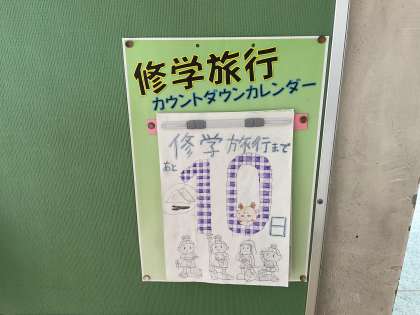 修学旅行
カウントダウンカレンダー
修学旅行まで
あと
10
日